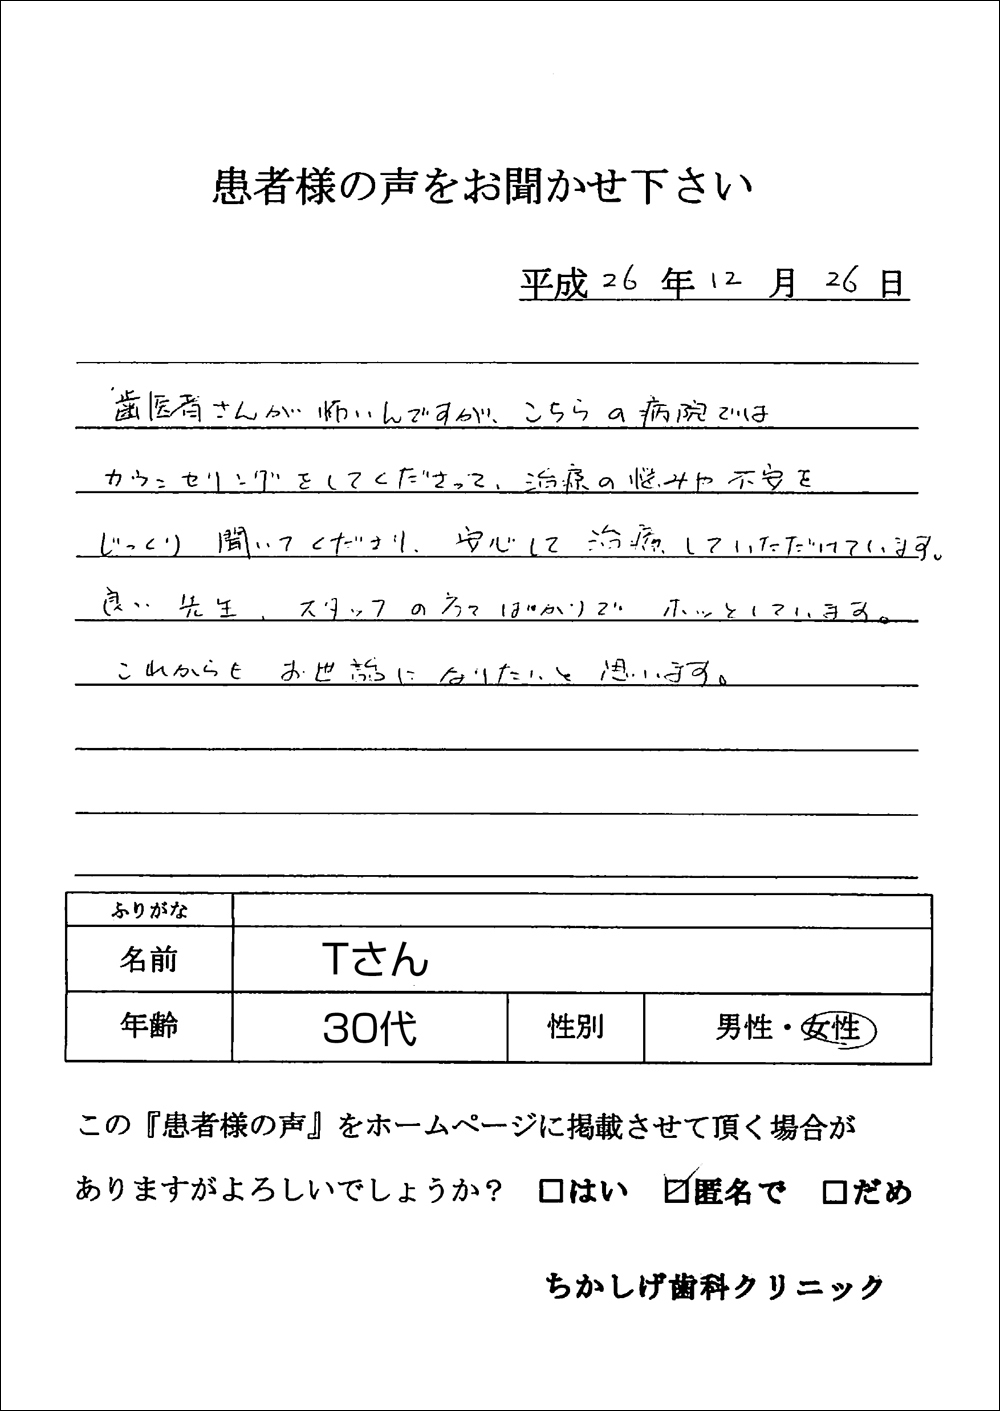 患者様の声をお聞かせ下さい
平成 26 年 12 月 26 日
歯医者さんが怖いんですが、こちらの病院では
カウンセリングをしてくださって、治療の悩みや不安を
じっくり聞いてくださり、安心して治療していただけています。
良い先生、スタッフの方々ばかりでホッとしています。
これからもお世話になりたいと思います。
ふりがな
名前 Tさん
年齢 30代 性別 男性・女性
この『患者様の声』をホームページに掲載させて頂く場合が
ありますがよろしいでしょうか？ □はい ☑匿名で □だめ
ちかしげ歯科クリニック